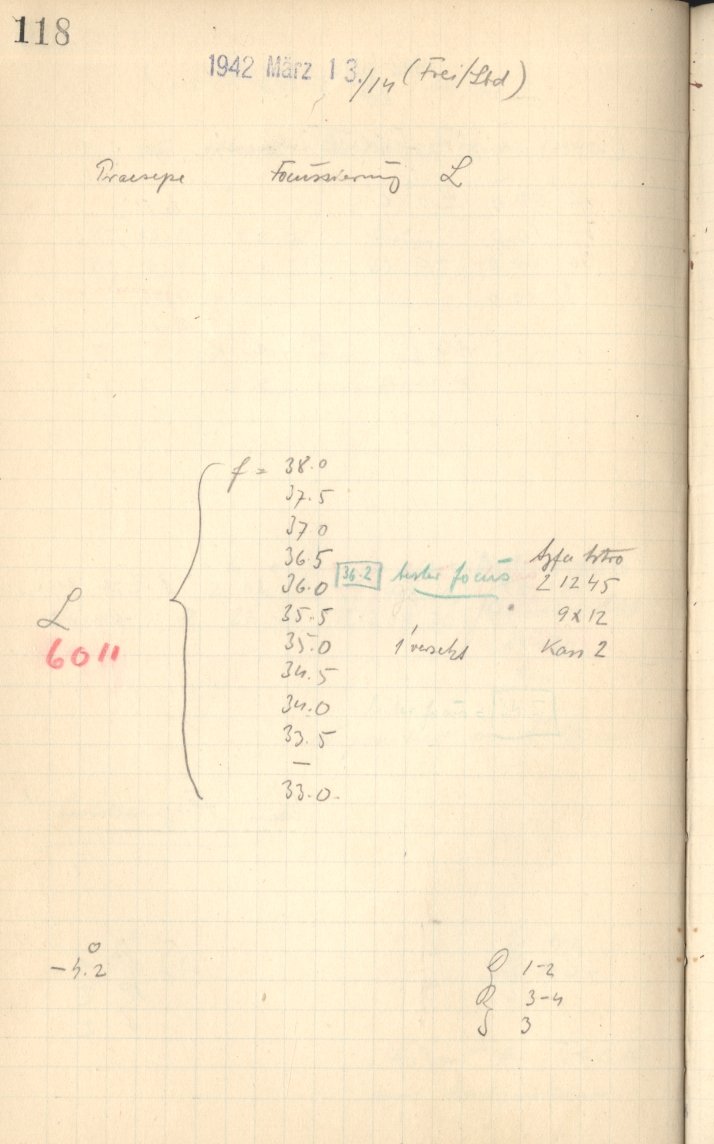 118
1942 März 13./14 (Frei/Sbd)
Praesepe Focussierung L
f = 38.0
37.5
37 0
36.5 Agfa Astro
36.0 36.2 bester focus 21245
35.5 9x12
L 35.0 1' versch Kass 2
6011
34.5
34.0
33.5
—
33.0
-4.2° Q 1-2
R 3-4
S 3